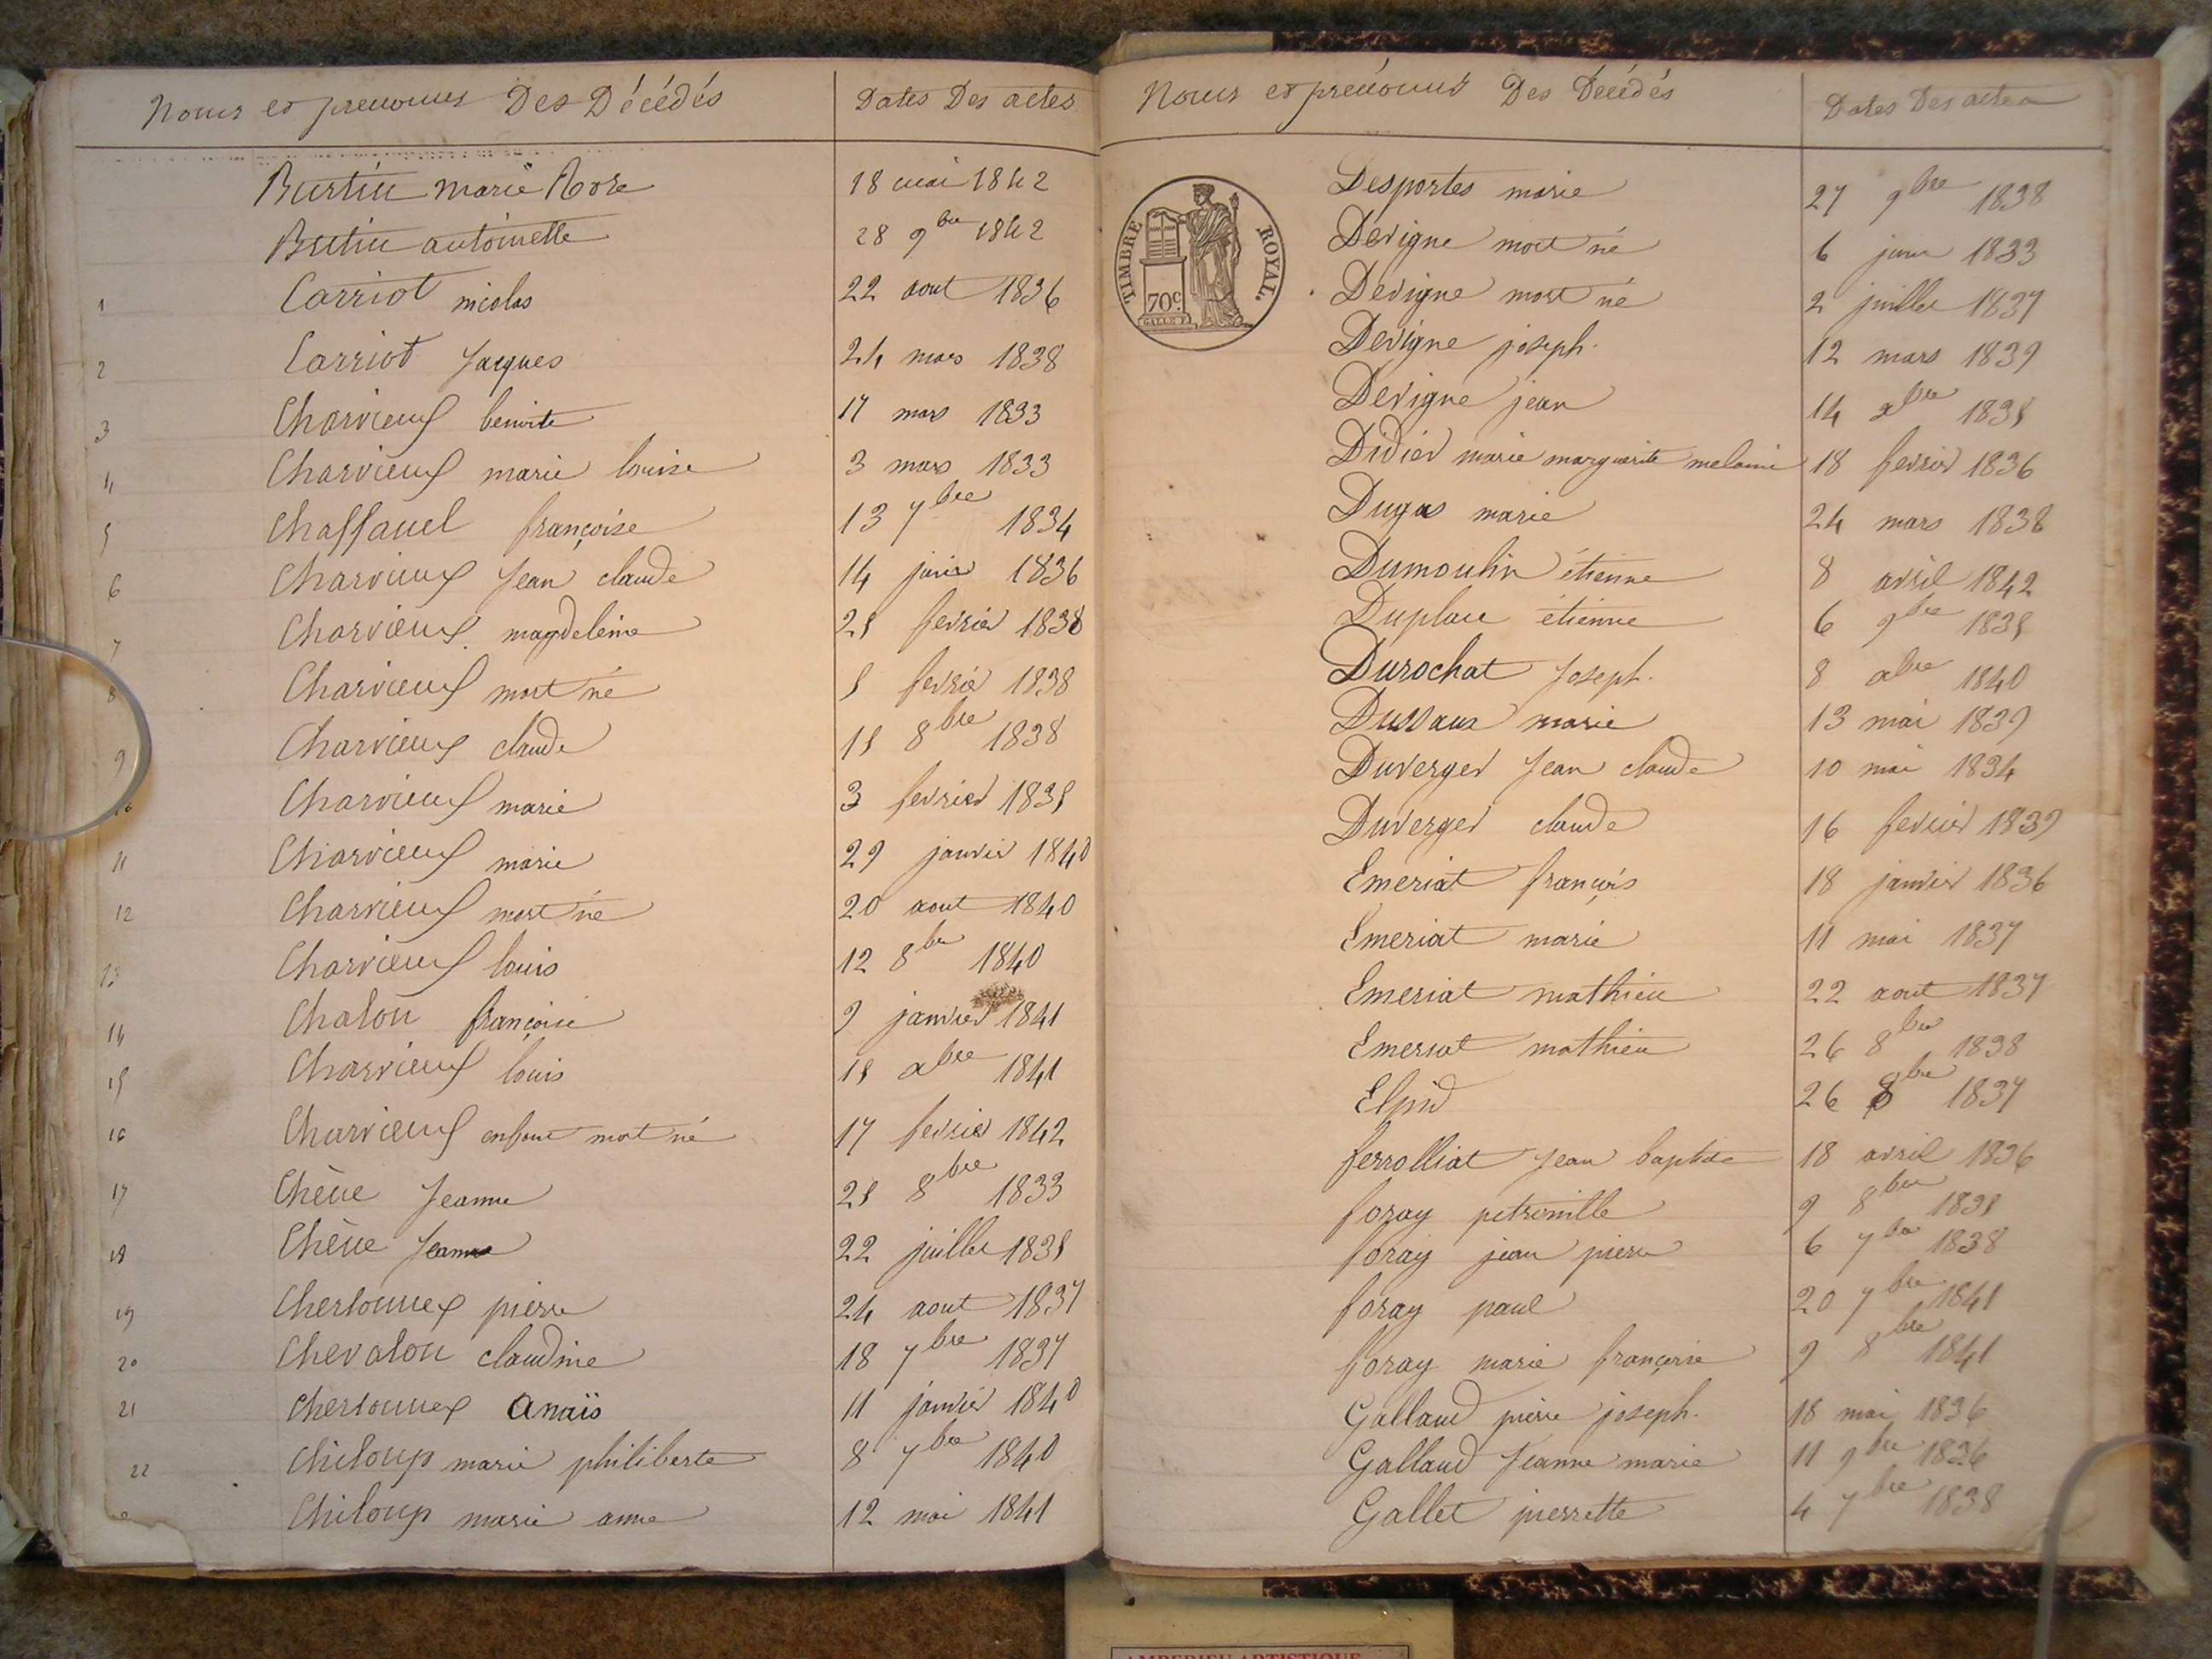 Noms et prenoms Des Décédés Dates Des actes
Burtin marie Rose 18 mai 1842
Butin antoinette 28 9bre 1842
1 Carriot nicolas 22 aout 1836
2 Carriot Jacques 24 mars 1838
3 Charvieux benoite 17 mars 1833
4 Charvieux marie louise 3 mars 1833
5 Chaffanel françoise 13 7bre 1834
6 Charvieux Jean claude 14 1836
7 Charvieux magdeleine 25 fevrier 1838
8 Charvieux mort né 5 fevrier 1838
9 Charvieux claude 15 8bre 1838
10 Charvieux marie 3 fevrier 1835
11 Charvieux marie 29 janvier 1840
12 Charvieux mort né 20 aout 1840
13 Charvieux louis 12 8bre 1840
14 Chalon françoise 9 janvier 1841
15 Charvieux louis 15 xbre 1841
16 Charvieux enfant mort né 17 fevrier 1842
17 Chêne Jeanne 25 8bre 1833
18 Chêne Jeanne 22 juillet 1835
19 Cherlonnex pierre 24 aout 1837
20 Chevalon claudine 18 7bre 1837
21 Cherlonnex Anaïs 11 janvier 1840
22 Chiloup marie philiberte 8 7bre 1840
Chiloup marie anne 12 mai 1841
Noms et prénoms Des Décédés Dates Des actes
TIMBRE ROYAL.
70c.
Desportes marie 27 9bre 1838
Devigne mort né 6 1833
Devigne mort né 2 juillet 1837
Devigne joseph. 12 mars 1839
Devigne jean 14 xbre 1835
Didier marie marguerite melanie 18 fevrier 1836
Dugas marie 24 mars 1838
Dumoulin étienne 8 avril 1842
Duplace étienne 6 9bre 1835
Durochat Joseph. 8 xbre 1840
Dussaux marie 13 mai 1839
Duverger Jean claude 10 mai 1834
Duverger claude 16 fevrier 1839
Emeriat françois 18 janvier 1836
Emeriat marie 11 mai 1837
Emeriat mathieu 22 aout 1837
Emeriat mathieu 26 8bre 1838
Elpid 26 8bre 1837
ferrolliat Jean baptiste 18 avril 1836
foray petronille 9 8bre 1835
foray jean pierre 6 7bre 1838
foray paul 20 7bre 1841
foray marie françoise 9 8bre 1841
Galland pierre joseph. 18 mai 1836
Galland Jeanne marie 11 9bre 1836
Gallet pierrette 4 7bre 1838
AMBERIEU ARTISTIQUE